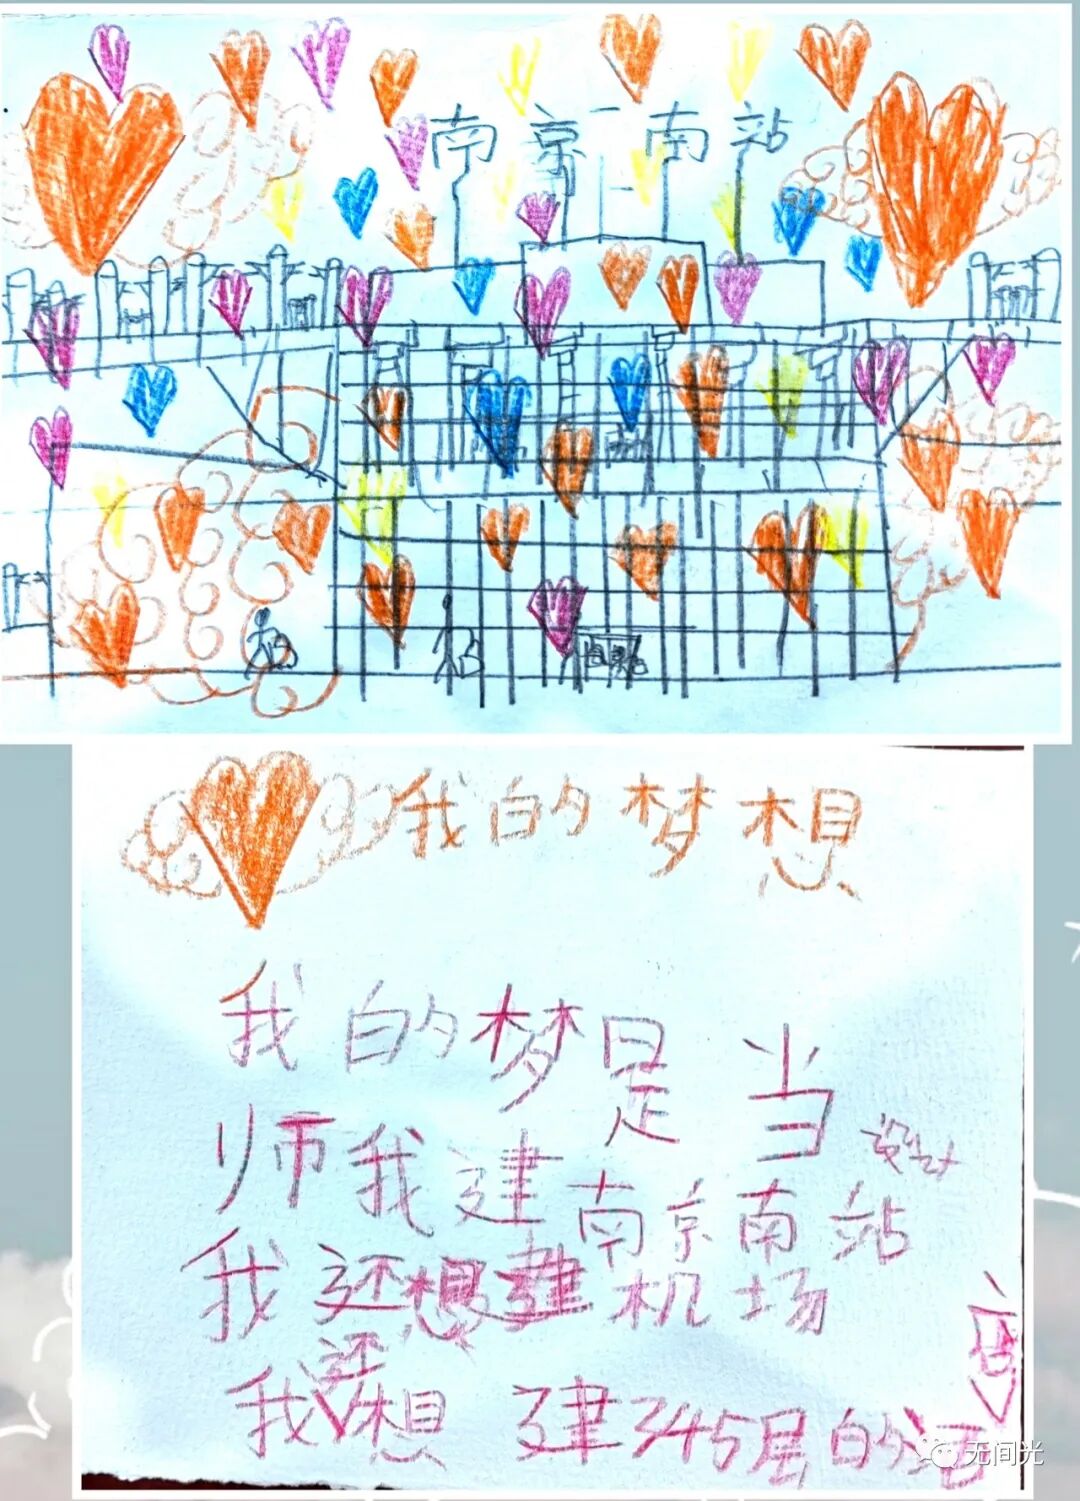 南京南站
我的梦想
我的梦是当设计
师我建南京南站
我还想建机场
我还想建345层的酒店
无间光